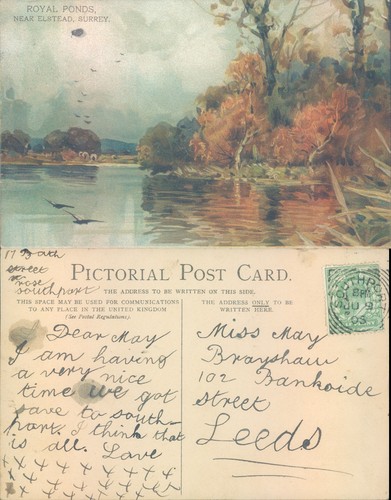 ROYAL PONDS,
NEAR ELSTEAD, SURREY.
17 Bath
street
rose
southport
PICTORIAL POST CARD.
THE ADDRESS TO BE WRITTEN ON THIS SIDE.
THIS SPACE MAY BE USED FOR COMMUNICATIONS
TO ANY PLACE IN THE UNITED KINGDOM
(See Postal Regulations).
THE ADDRESS ONLY TO BE
WRITTEN HERE.
Dear May
I am having
a very nice
time we got
save to south-
port. I think that
is all. Love
Miss May
Brayshaw
102 Bankside
Street
Leeds
SOUTHPORT